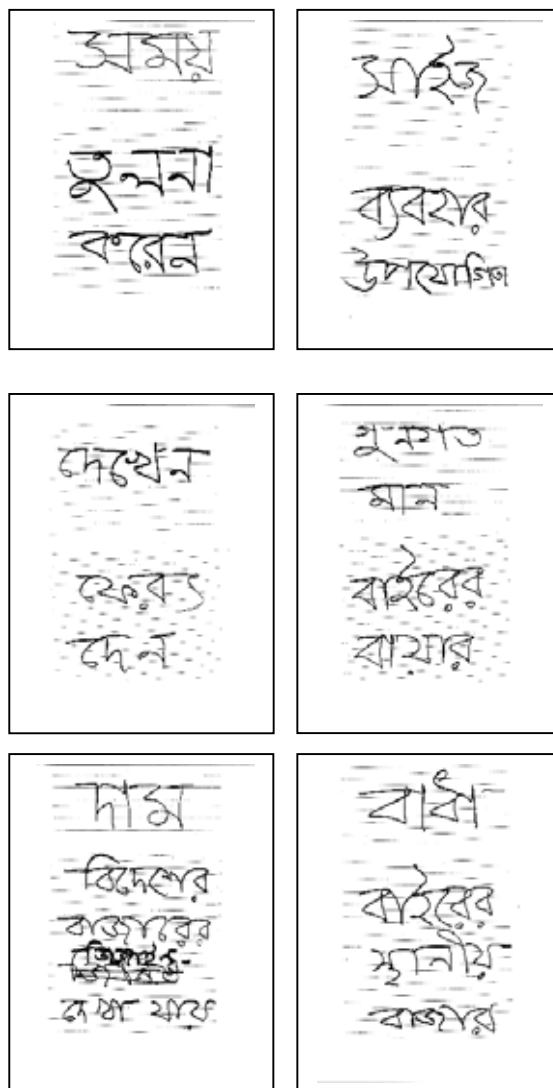 সময়
তুলনা
করেন
সাইজ
ব্যবহার
উপযোগিতা
দেখেন
ফেরৎ
দেন
গুনগত
মান
বাইরের
বাযার
দাম
বিদেশের
বাজারের
দেখা যাক
বাধা
বাইরের
স্থানীয়
বাজার